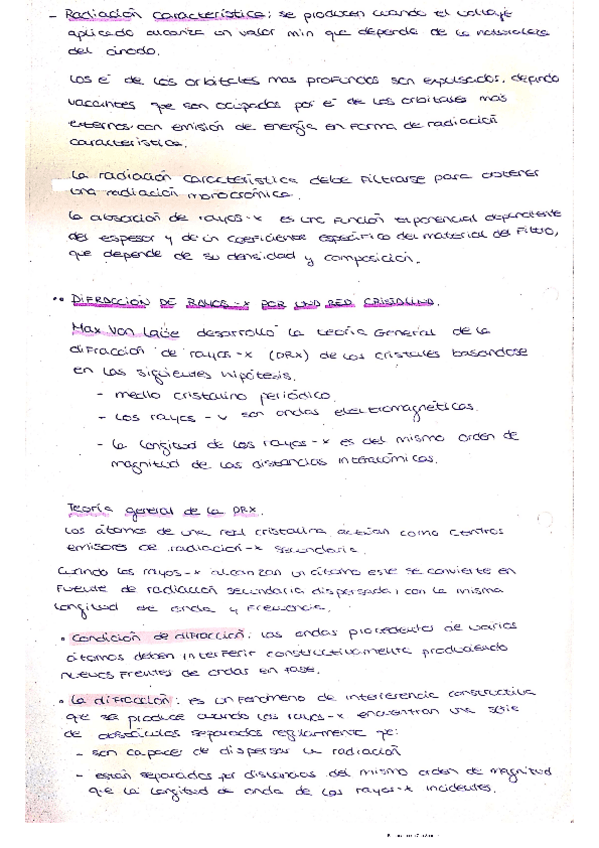 - Radiación característica: se producen cuando el voltaje
aplicado alcanza un valor min que depende de la naturaleza
del ánodo.
Los e⁻ de los orbitales mas profundos son expulsados, dejando
vacantes que son ocupados por e⁻ de los orbitales mas
externos con emisión de energía en forma de radiación
característica.
La radiación característica debe filtrarse para obtener
una radiación monocrómica.
La absorción de rayos-x es una función exponencial dependiente
del espesor y de un coeficiente específico del material del filtro,
que depende de su densidad y composición.
•• DIFRACCIÓN DE RAYOS-X POR UNA RED CRISTALINA.
Max Von Laue desarrolló la teoría General de la
difracción de rayos-x (DRX) de los cristales basandose
en las siguientes hipótesis.
- medio cristalino periódico.
- los rayos-x son ondas electromagnéticas.
- la longitud de los rayos-x es del mismo orden de
magnitud de las distancias interatómicas.
Teoría general de la DRX.
Los átomos de una red cristalina actúan como centros
emisores de radiación-x secundaria.
Cuando los rayos-x alcanzan un átomo este se convierte en
fuente de radiación secundaria dispersada, con la misma
longitud de onda y frecuencia.
• Condición de difracción: las ondas procedentes de varios
átomos deben interferir constructivamente produciendo
nuevos frentes de ondas en fase.
• La difracción: es un fenómeno de interferencia constructiva
que se produce cuando los rayos-x encuentran una serie
de obstáculos separados regularmente que:
- son capaces de dispersar la radiación
- están separados por distancias del mismo orden de magnitud
que la longitud de onda de los rayos-x incidentes.